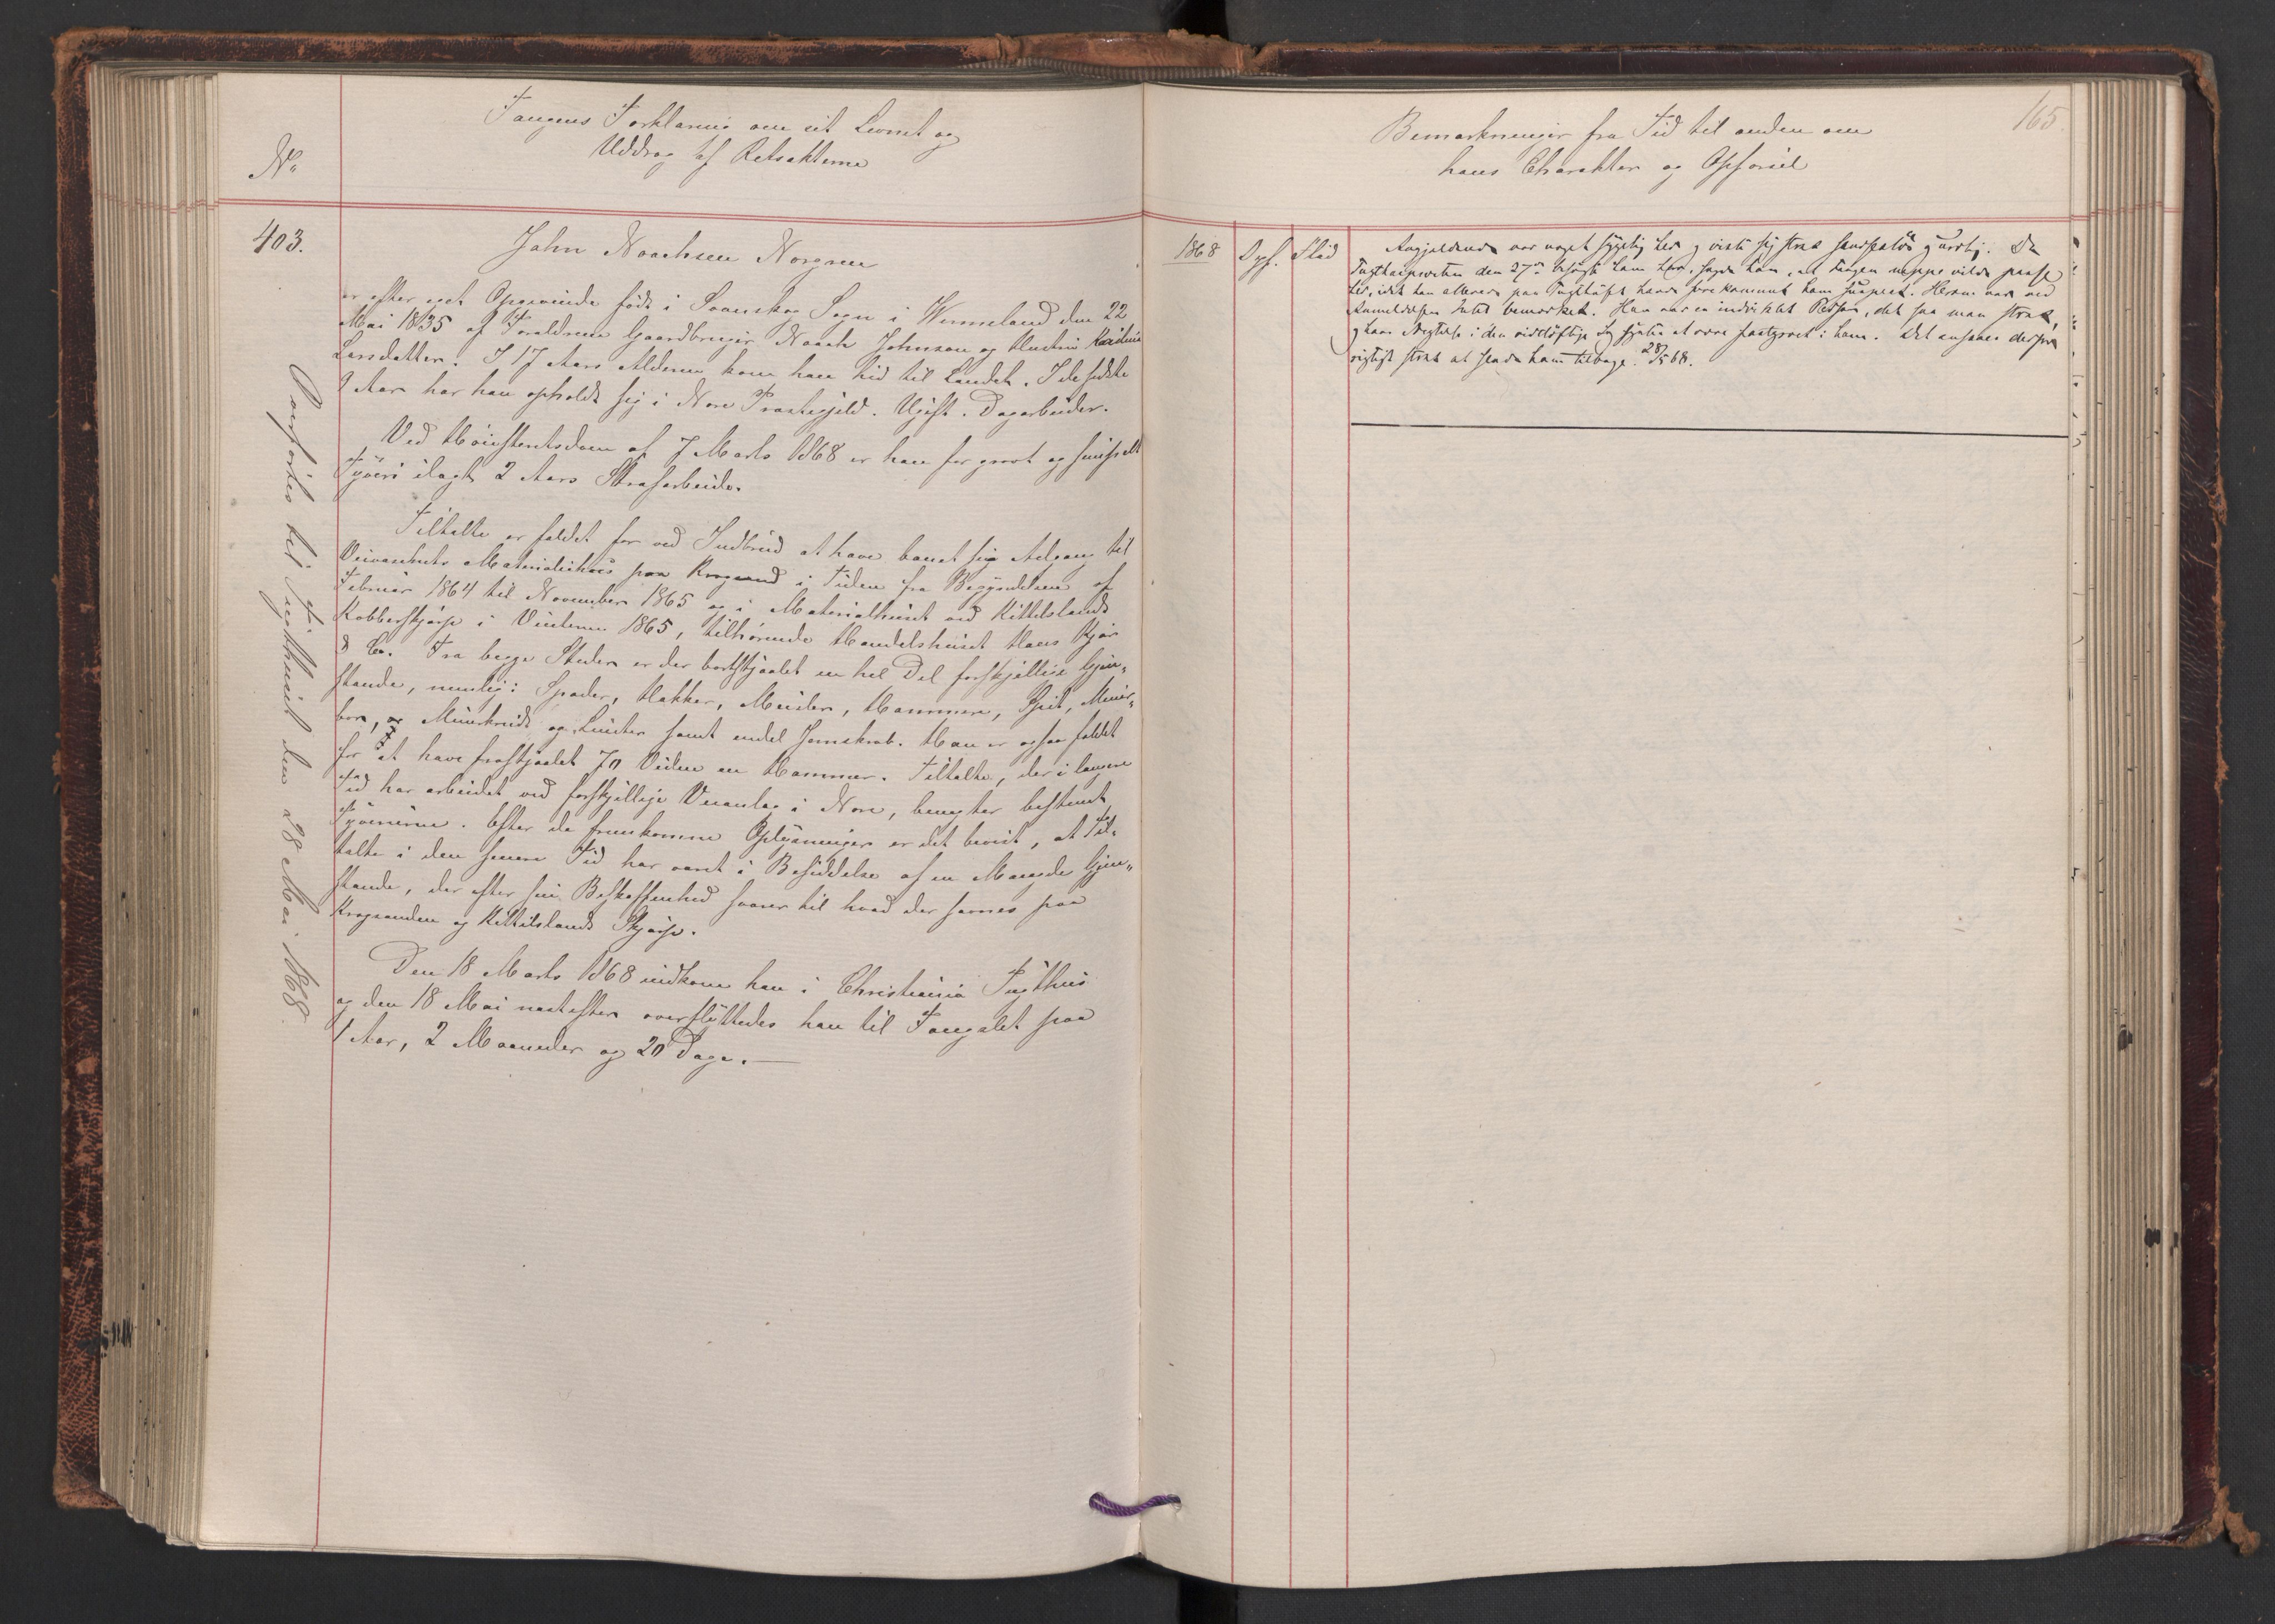 Fangens Forklaring om sit Levnet og
Uddrag af Retsakterne
No
403.
John Noachsen Norgren
er efter eget Opgivende født i Svanskog Sogn i Wermeland den 22
Mai 1835 af Forældrene Gaardbruger Noach Johnson og Hustru
Larsdatter. I 17 Aars Alderen kom han hid til Landet. I de sidste
9 Aar har han opholdt sig i Nore Præstegjeld. Ugift. Dagarbeider.
Ved Høiesteretsdom af 7 Marts 1868 er han for grovt og simpelt
Tyveri ilagt 2 Aars Strafarbeide.
Tiltalte er fældet for ved Indbrud at have banet sig Adgang til
Veivæsenets Materialhus paa Krogsand i Tiden fra Begyndelsen af
Februar 1864 til November 1865 og i Materialhuset ved Kittilslands
Kobberskjærp i Vinteren 1865, tilhørende Handelshuset Hans Kjær
& Co. Fra begge Steder er der bortstjaalet en hel Del forskjellige Gjen-
stande, nemlig: Spader, Hakker, Meisler, Hammere, Spid, Miner-
bor, Minerkrudt og Lunter samt endel Jernskrab. Han er ogsaa fældet
for at have frastjaalet Jo Viden en Hammer. Tiltalte, der i længere
Tid har arbeidet ved forskjellige Veianlæg i Nore, benegter bestemt
Tyverierne. Efter de fremkomne Oplysninger er det bevist, at Til-
talte i den senere Tid har været i Besiddelse af en Mængde Gjen-
stande, der efter sin Beskaffenhed svarer til hvad der savnes paa
Krogsanden og Kittilslands Skjærp.
Den 18 Marts 1868 indkom han i Christiania Tugthus
og den 18 Mai næstefter overflyttedes han til Fængslet paa
1 Aar, 2 Maaneder og 20 Dage.—
Overførtes til Tugthuset den 28 Mai 1868.
Bemærkninger fra Tid til anden om
hans Charakter og Opførsel
165.
1868
Opf.
Flid
Angjeldende var noget sygelig her og viste sig strax sandseslös og urolig. Da
Tugthuspræsten den 27de besøgte ham her, sagde han, at Fangen neppe vilde passe
her, idet han allerede paa Tugthuset havde forekommet ham suspect. Herom var ved
Anmeldelsen Intet bemærket. Han var en indviklet Person, det saa man strax,
og hans Negtelse i den vidtløftige Sag syntes at være fastgroet i ham. Det ansaaes derfor
rigtigst strax at sende ham tilbage. 28/5 68.